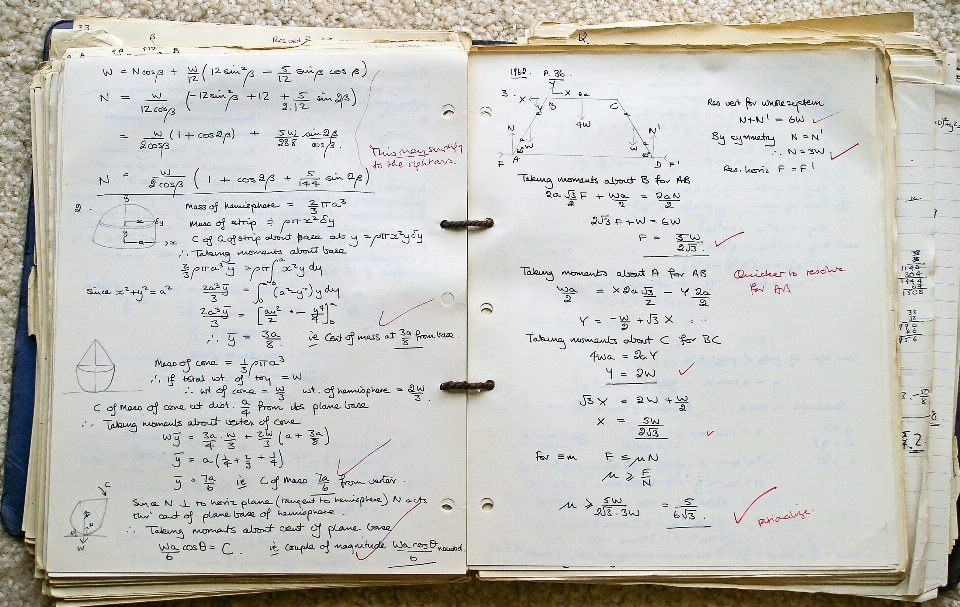 W = Ncosβ + W/12 (12sin²β - 5/12 sinβ cosβ)
N = W/12cosβ (-12sin²β + 12 + 5/2.12 sin2β)
= W/2cosβ (1 + cos2β) + 5W/288 sin2β/cosβ
This may simplify
to the right ans.
N = W/2cosβ (1 + cos2β + 5/144 sin2β)
2.
Mass of hemisphere = 2/3 πa³
Mass of strip = ρπx²δy
C of G of strip about base as y = ρπx²yδy
∴ Taking moments about base
2/3 ρπa³ȳ = ρπ∫₀ᵃ x²y dy
Since x²+y²=a² 2a³ȳ/3 = ∫₀ᵃ (a²-y²)y dy
2a³ȳ/3 = [ay²/2 - y⁴/4]₀ᵃ
∴ ȳ = 3a/8. ie Cent of mass at 3a/8 from base
Mass of cone = 1/3 ρπa³
∴ If total wt. of toy = W
∴ wt of cone = W/3 wt. of hemisphere = 2W/3.
C of Mass of cone at dist. a/4 from its plane base
∴ Taking moments about vertex of cone
Wȳ = 3a/4 . W/3 + 2W/3 (a + 3a/8)
ȳ = a(1/4 + 2/3 + 1/4)
ȳ = 7a/6 ie C of Mass 7a/6 from vertex.
Since N ⊥ to horiz plane (tangent to hemisphere) N acts
thru' cent of plane base of hemisphere.
∴ Taking moments about cent of plane base
Wa/6 cosθ = C. ie couple of magnitude Wa cosθ/6 needed.
1962. P. 36.
3.
Res vert for whole system
N+N' = 6W
By symmetry N = N'
∴ N = 3W
Res. horiz F = F'
Taking moments about B for AB
2a√3/2 F + Wa/2 = 2aN/2
2√3 F + W = 6W
F = 5W/2√3.
Taking moments about A for AB
Quicker to resolve
for AB
Wa/2 = X2a√3/2 - Y2a/2
Y = -W/2 + √3 X
Taking moments about C for BC
4Wa = 2aY
Y = 2W
√3 X = 2W + W/2
X = 5W/2√3
For ≡m F ≤ μN
μ ≥ F/N
μ ≥ 5W/2√3.3W = 5/6√3.
rationalise.